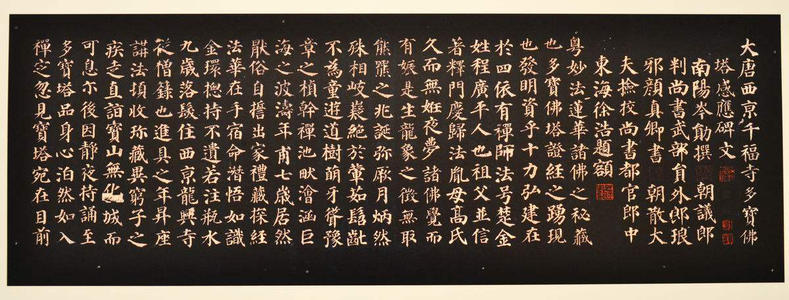 大唐西京千福寺多寶佛
塔感應碑文
南陽岑勛撰 朝議郎
判尚書武部員外郎琅
邪顏真卿書 朝散大
夫撿挍尚書都官郎中
東海徐浩題額
粵妙法蓮華諸佛之秘藏
也多寶佛塔證經之踴現
也發明資乎十力弘建在
於四依有禪師法号楚金
姓程廣平人也祖父並信
著釋門慶歸法胤母高氏
久而無妊夜夢諸佛覺而
有娠是生龍象之徵無取
熊羆之兆誕弥厥月炳然
殊相岐嶷絕於葷茹髫齔
不為童遊道樹萌牙聳豫
章之楨幹禪池畎澮涵巨
海之波濤年甫七歲居然
猒俗自誓出家禮藏探經
法華在手宿命潛悟如識
金環揔持不遺若注瓶水
九歲落髮住西京龍興寺
從僧籙也進具之年昇座
講法頓收珎藏異窮子之
疾走直詣寶山無化城而
可息尒後因靜夜持誦至
多寶塔品身心泊然如入
禪定忽見寶塔宛在目前